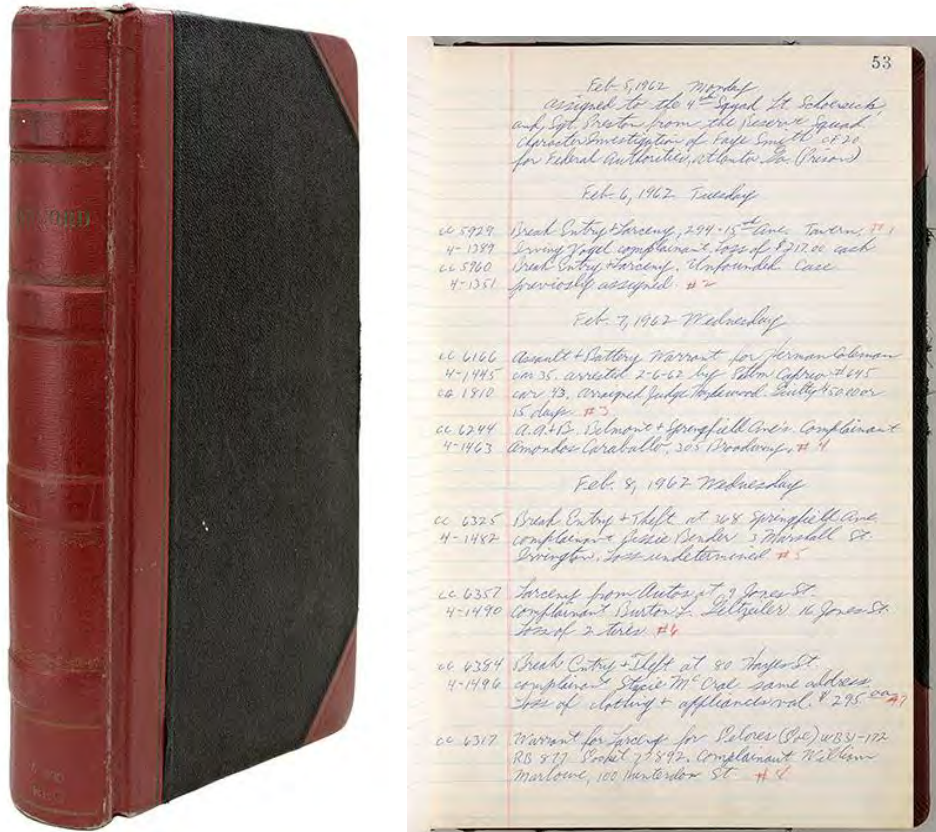 RECORD
53
Feb. 5, 1962 Monday
assigned to the 4th Squad Lt. Schoereich
and Sgt. Preston from the Reserve Squad.
Character Investigation of Faye Smith CF20
for Federal Authorities, Atlanta, Ga (Prison)
Feb. 6, 1962 Tuesday
cc 5929 Break Entry + Larceny, 294-15th Ave. Tavern, #1
4-1389 Irving Vogel complainant Loss of $217.00 cash
cc 5960 Break Entry + Larceny. Unfounded Case
4-1351 previosly assigned. #2
Feb. 7, 1962 Wednesday
cc 6166 Assault + Battery Warrant for Herman Coleman
4-1445 car 35. arrested 2-6-62 by Ptlm Caprio #645
1810 car 43. arraigned Judge Guilty $50.00 or
15 days #3
cc 6244 A.A.+B. Belmont + Springfield Ave's. Complainant
4-1463 Amondos Caraballo, 305 Broadway. #4
Feb. 8, 1962 Wednesday
cc 6325 Break Entry + Theft at 368 Springfield Ave
4-1482 complainant Jessie Bender 3 Marshall St.
Irvington. Loss undetermined #5
cc 6357 Larceny from Autos at 9 Jones St.
4-1490 complainant Burton L. Geltzeiler 16 Jones St.
Loss of 2 tires #6
cc 6384 Break Entry + Theft at 80 Hayes St.
4-1496 complainant Stacie McCrae same address
Loss of clothing + appliances val. $295.00 #7
cc 6317 Warrant for Larceny for Delores WB31-172
RB 877 Docket 77892, Complainant William
Marlowe, 100 Hunterdon St. #8